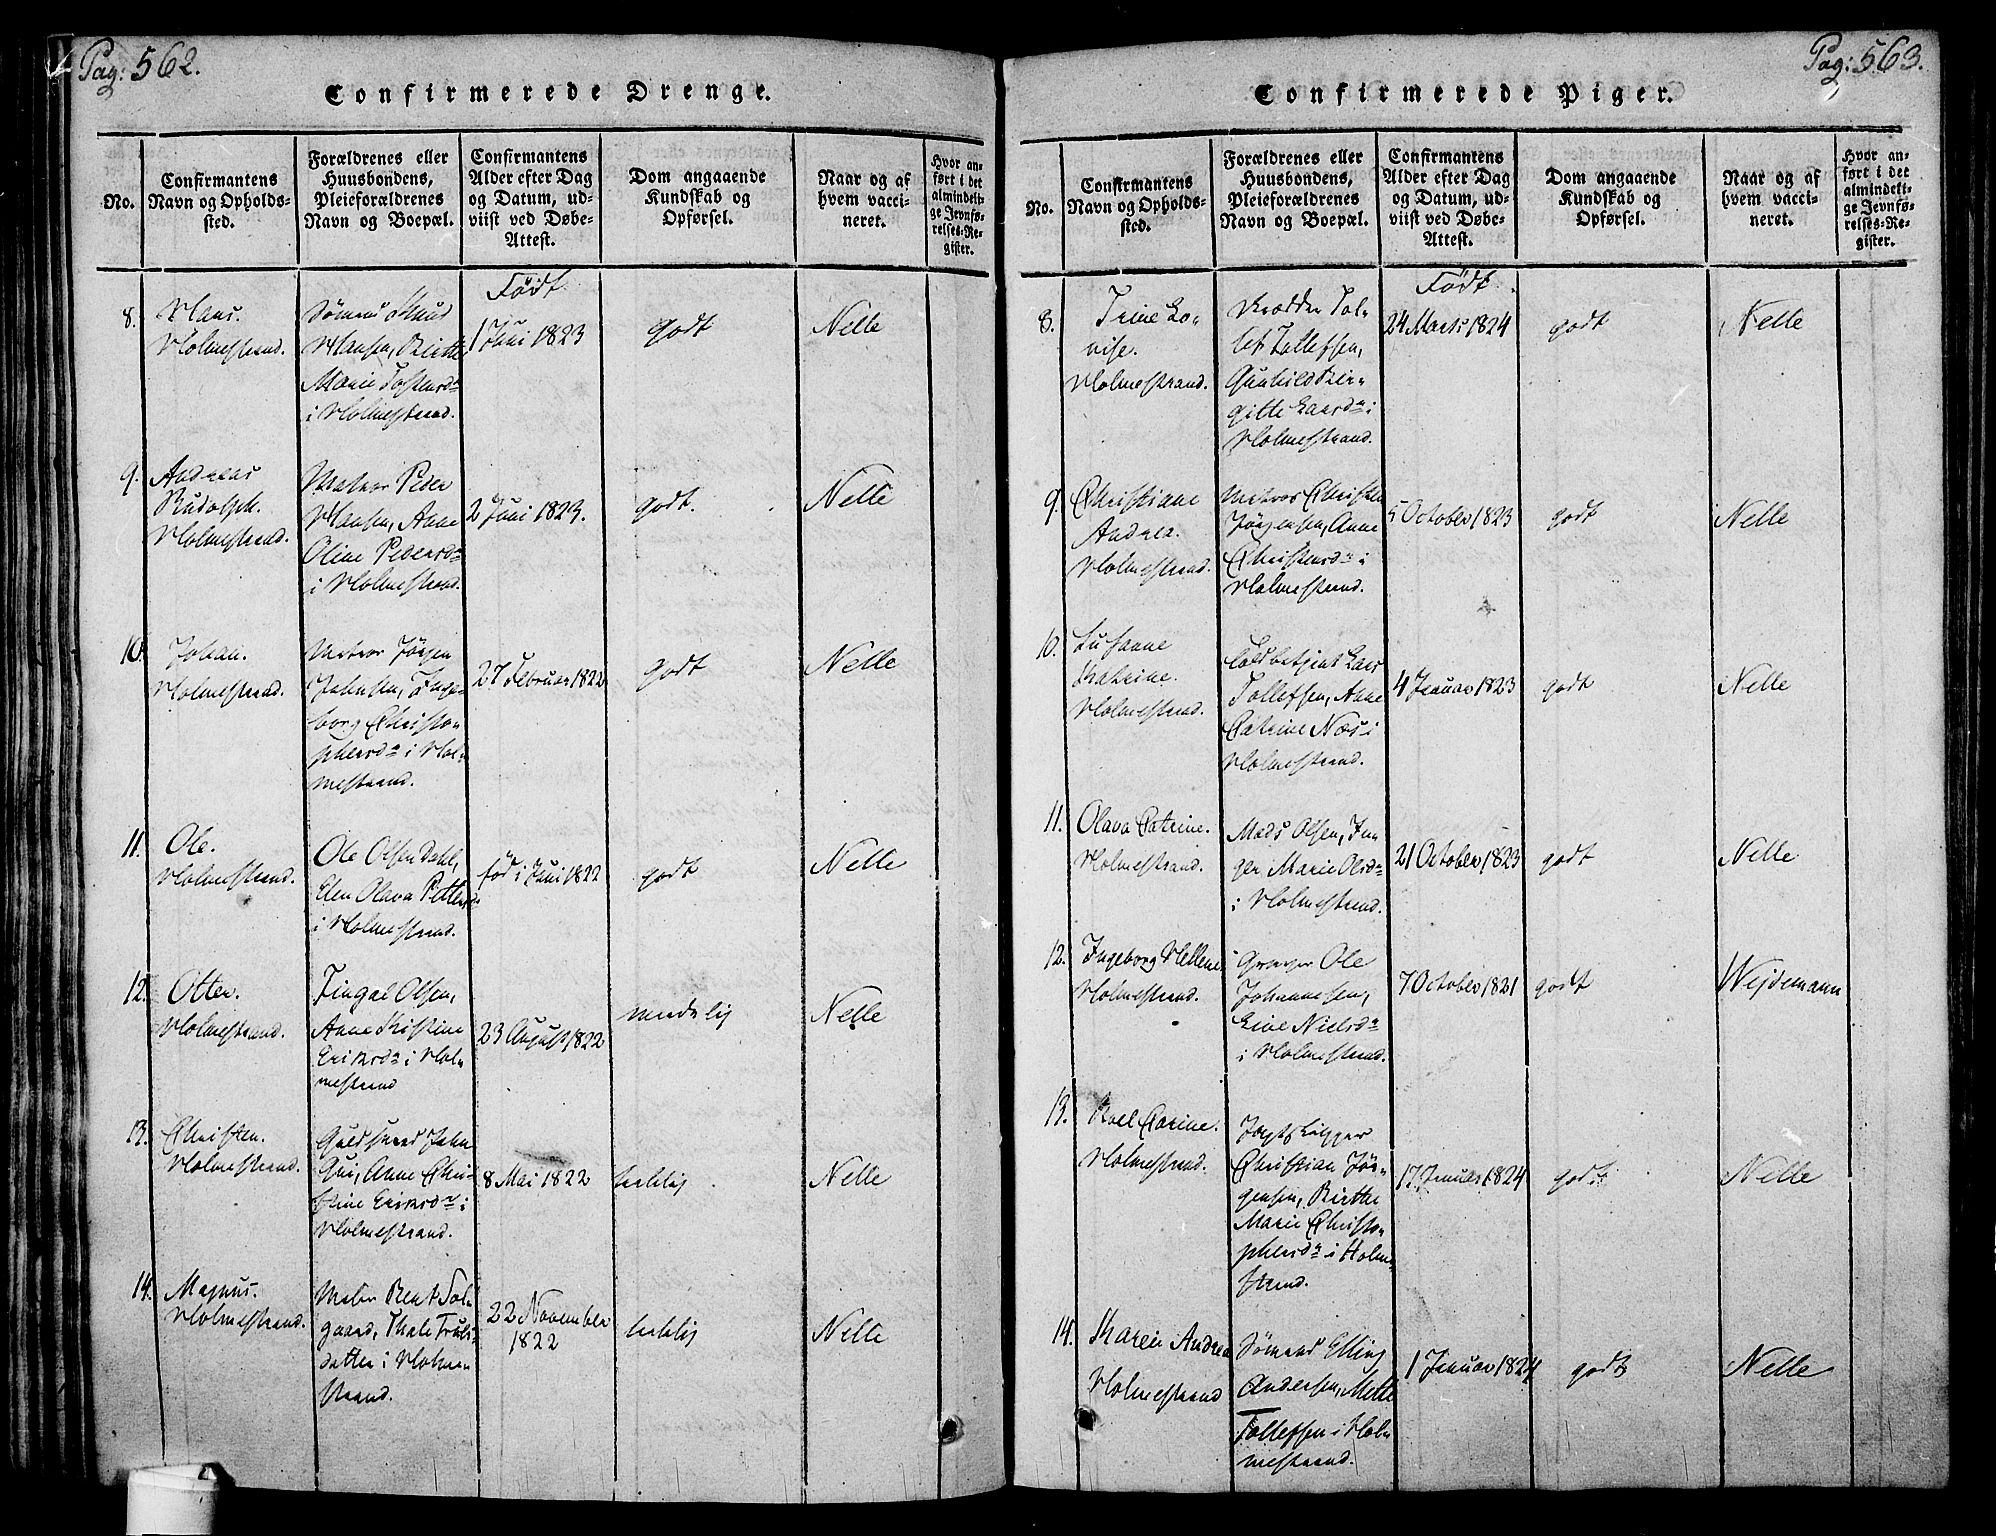 Pag: 562.
Confirmerede Drenge.
No.
Confirmantens
Navn og Opholds-
sted.
Forældrenes eller
Huusbondens,
Pleieforældrenes
Navn og Boepæl.
Confirmantens
Alder efter Dag
og Datum, ud-
viist ved Døbe-
Attest.
Dom angaaende
Kundskab og
Opførsel.
Naar og af
hvem vacci-
neret.
Hvor an-
ført i det
almindeli-
ge Jevnfø-
relses-Re-
gister.
8.
Hans.
Holmestrand.
Sömand Knud
Hansen, Birthe
Marie Tostensdn
i Holmestrand.
Född.
1 Juni 1823
godt
Nelle
9.
Andreas
Rudolph.
Holmestrand.
Matros Peder
Hansen, Anne
Oline Pedersdn
i Holmestrand.
2 Juni 1823.
godt.
Nelle
10.
Johan.
Holmestrand.
Matros Jörgen
Johnsen, Inge-
borg Christo-
phersdn i Hol-
mestrand.
27 Februar 1822
godt
Nelle
11.
Ole.
Holmestrand.
Ole Olsen Dahl,
Elen Olava Petters
i Holmestrand.
föd i Juni 1822
godt
Nelle
12.
Otter.
Holmestrand.
Fingal Olsen,
Anne Kristine
Eriksdn i Hol-
mestrand
23 August 1822
maadelig
Nelle
13.
Christen.
Holmestrand.
Guldsmed John
Qui, Anne Chri-
stine Eriksdn i
Holmestrand.
8 Mai 1822
Nelle
14.
Magnus.
Holmestrand.
Maler Bent Sol-
gaard, Thale Truls-
datter i Holme-
strand.
22 November
1822
Nelle
Pag: 563.
Confirmerede Piger.
No.
Confirmantens
Navn og Opholds-
sted.
Forældrenes eller
Huusbondens,
Pleieforældrenes
Navn og Boepæl.
Confirmantens
Alder efter Dag
og Datum, ud-
viist ved Døbe-
Attest.
Dom angaaende
Kundskab og
Opførsel.
Naar og af
hvem vacci-
neret.
Hvor an-
ført i det
almindeli-
ge Jevnfø-
relses-Re-
gister.
8.
Trine Lo-
vise.
Holmestrand.
Skrædder Tol-
lef Tollefsen,
Gunhild Bir-
gitte Larsdn i
Holmestrand.
Född.
24 Marts 1824
godt
Nelle
9.
Christiane
Andrea.
Holmestrand.
Matros Christen
Jörgensen, Anne
Christensdn i
Holmestrand.
5 October 1823
godt
Nelle
10.
Susanne
Katrine.
Holmestrand.
Toldbetjent Lars
Tollefsen, Anne
Catrine Næs i
Holmestrand.
4 Januar 1823
godt
Nelle
11.
Olava Catrine.
Holmestrand.
Mads Olsen, In-
ger Marie Olsdn
i Holmestrand.
21 October 1823
godt
Nelle
12.
Ingeborg Hellene
Holmestrand.
Ole
Johannesen,
Live Nielsdn
i Holmestrand.
7 October 1821
godt
Wejdemann
13.
Roel Carine.
Holmestrand.
Jagtskipper
Christian Jör-
gensen, Birthe
Marie Christo-
phersdn i Holme-
strand.
17 Januar 1824
godt
Nelle
14.
Karen Andrea
Holmestrand
Sömand Elling
Andersen, Mette
Tollefsen i Hol-
mestrand.
1 Januar 1824
godt
Nelle